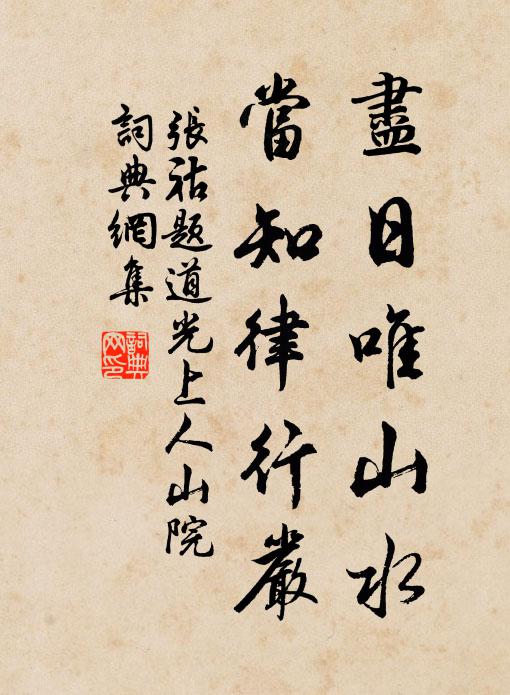 盡日唯山水
當知律行嚴
張祜題道光上人山院
詞典網集
詞典网印